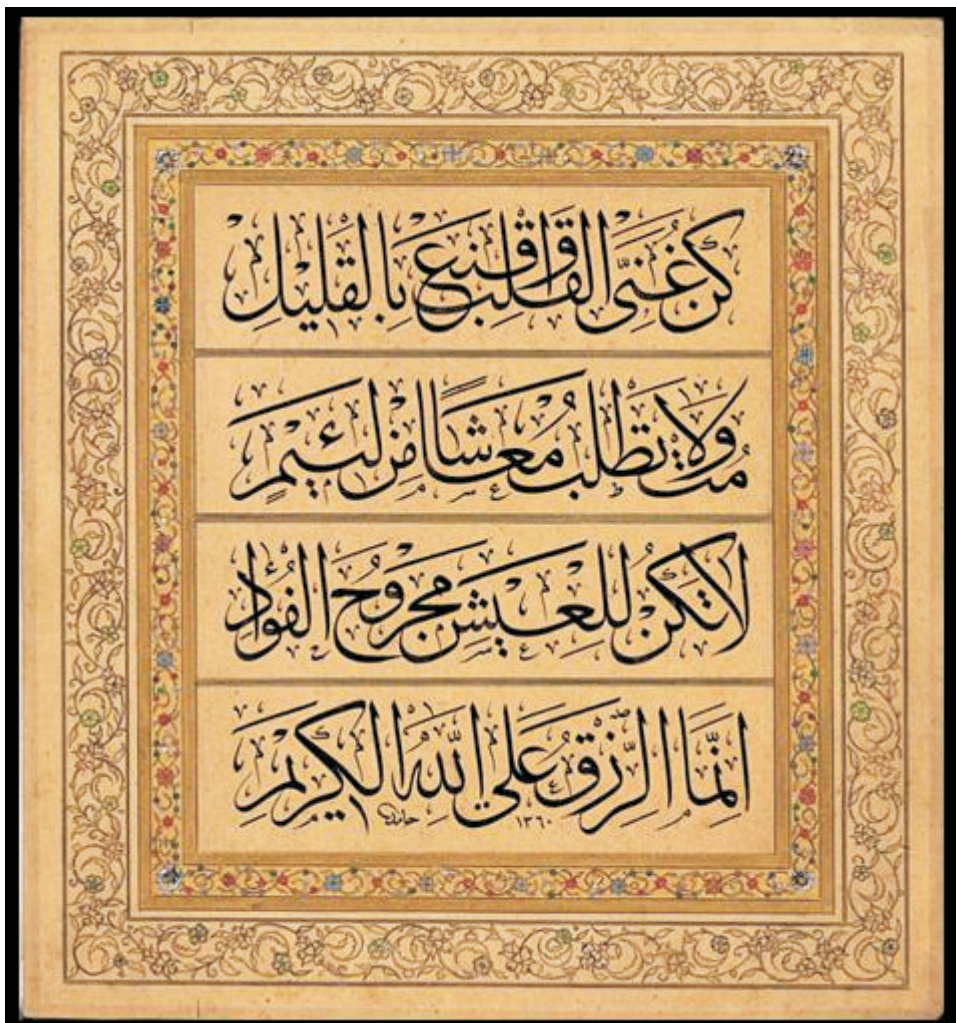 كُنْ غَنِيَّ الْقَلْبِ وَاقْنَعْ بِالْقَلِيلِ
مُتْ وَلَا تَطْلُبْ مَعَاشًا مِنْ لَئِيمٍ
لَا تَكُنْ لِلْعَيْشِ مَجْرُوحَ الْفُؤَادِ
اِنَّمَا الرِّزْقُ عَلَى اللهِ الْكَرِيمِ
حامد ١٣٦٠